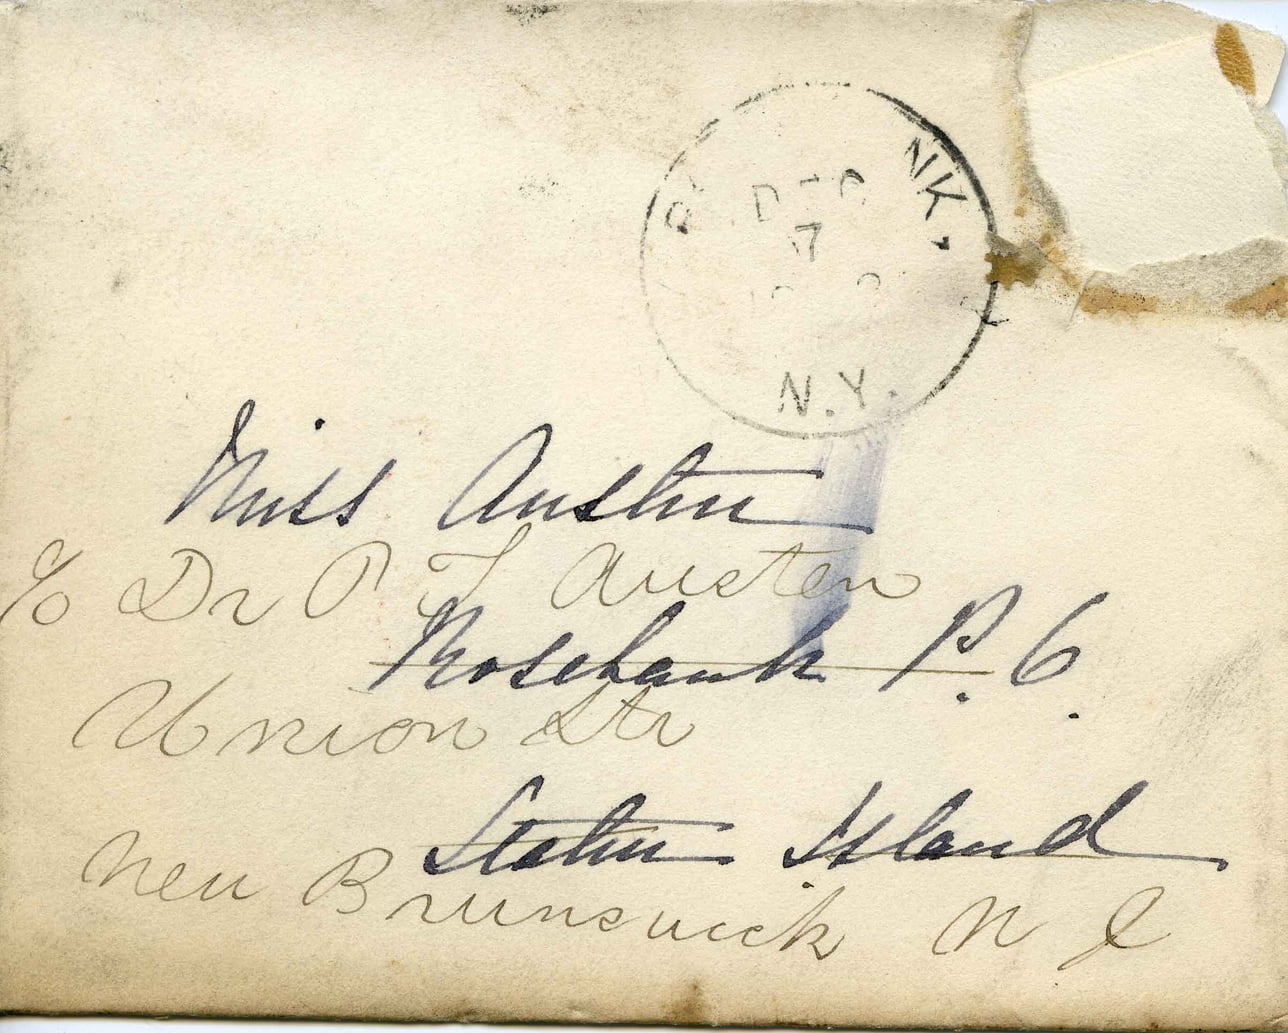 DEC
7
NK,
N.Y.
Miss Austen
c/o Dr P T Austen
Rosebank P. O.
Union Str
Staten Island
New Brunswick N J